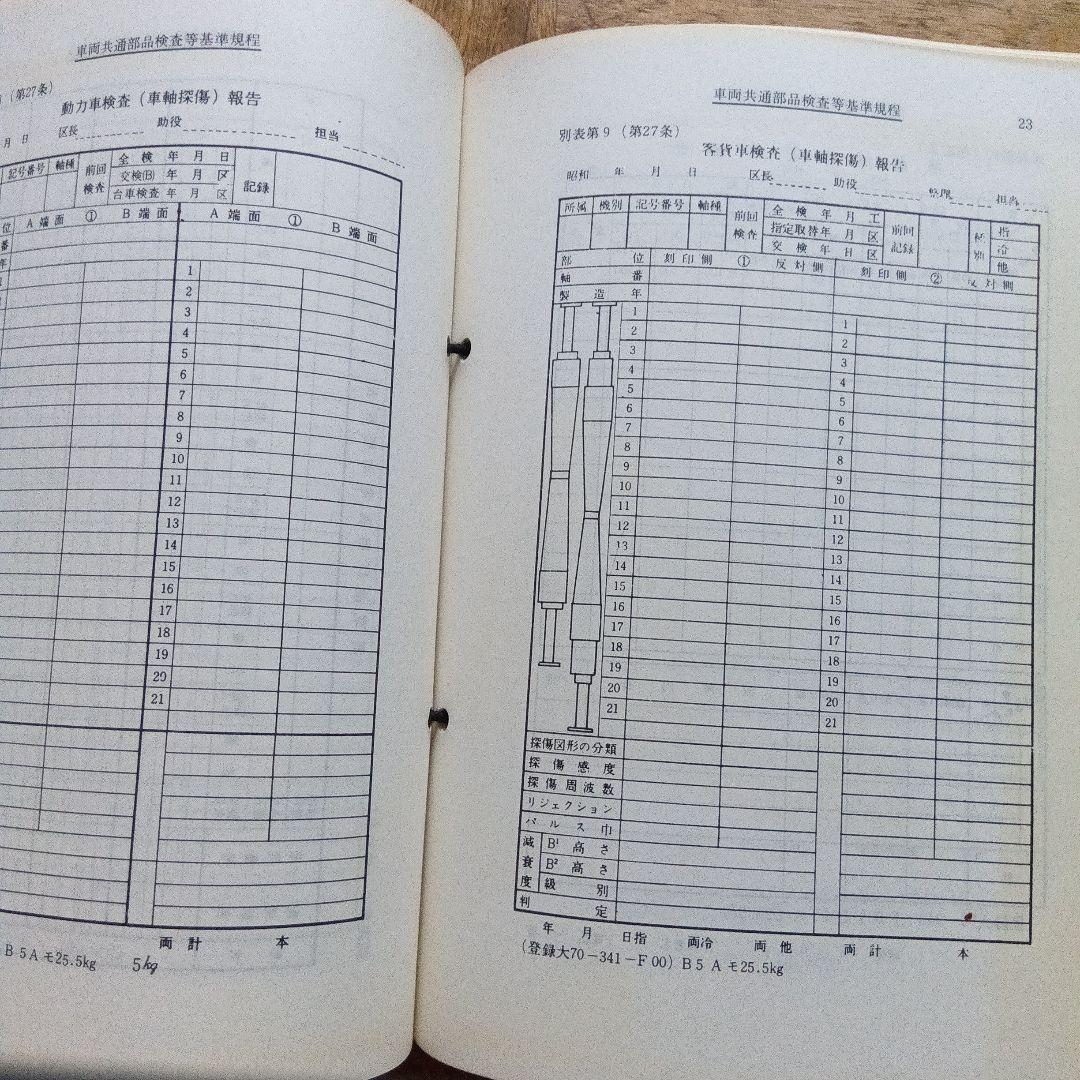 車両共通部品検査等基準規程
(第27条)
動力車検査(車軸探傷)報告
月 日 区長 助役 担当
記号番号 軸種 前回検査 全検 年 月 日 記録
交検(B) 年 月 区
台車検査 年 月 区
位 A端面 ① B端面 A端面 ① B端面
番
年
1
2
3
4
5
6
7
8
9
10
11
12
13
14
15
16
17
18
19
20
21
両計 本
B5Aモ25.5kg 5kg
車両共通部品検査等基準規程 23
別表第9(第27条)
客貨車検査(車軸探傷)報告
昭和 年 月 日 区長 助役 担当
所属 機別 記号番号 軸種 前回検査 全検 年 月 工 前回記録 種別 指
指定取替 年 月 区 冷
交検 年 日 区 他
部位 刻印側 ① 反対側 刻印側 ② 反対側
軸番
製造年
1 1
2 2
3 3
4 4
5 5
6 6
7 7
8 8
9 9
10 10
11 11
12 12
13 13
14 14
15 15
16 16
17 17
18 18
19 19
20 20
21 21
探傷図形の分類
探傷感度
探傷周波数
リジェクション
パルス巾
減衰度 B1 高さ
B2 高さ
級別
判定
年 月 日指 両冷 両他 両計 本
(登録大70-341-F00)B5Aモ25.5kg